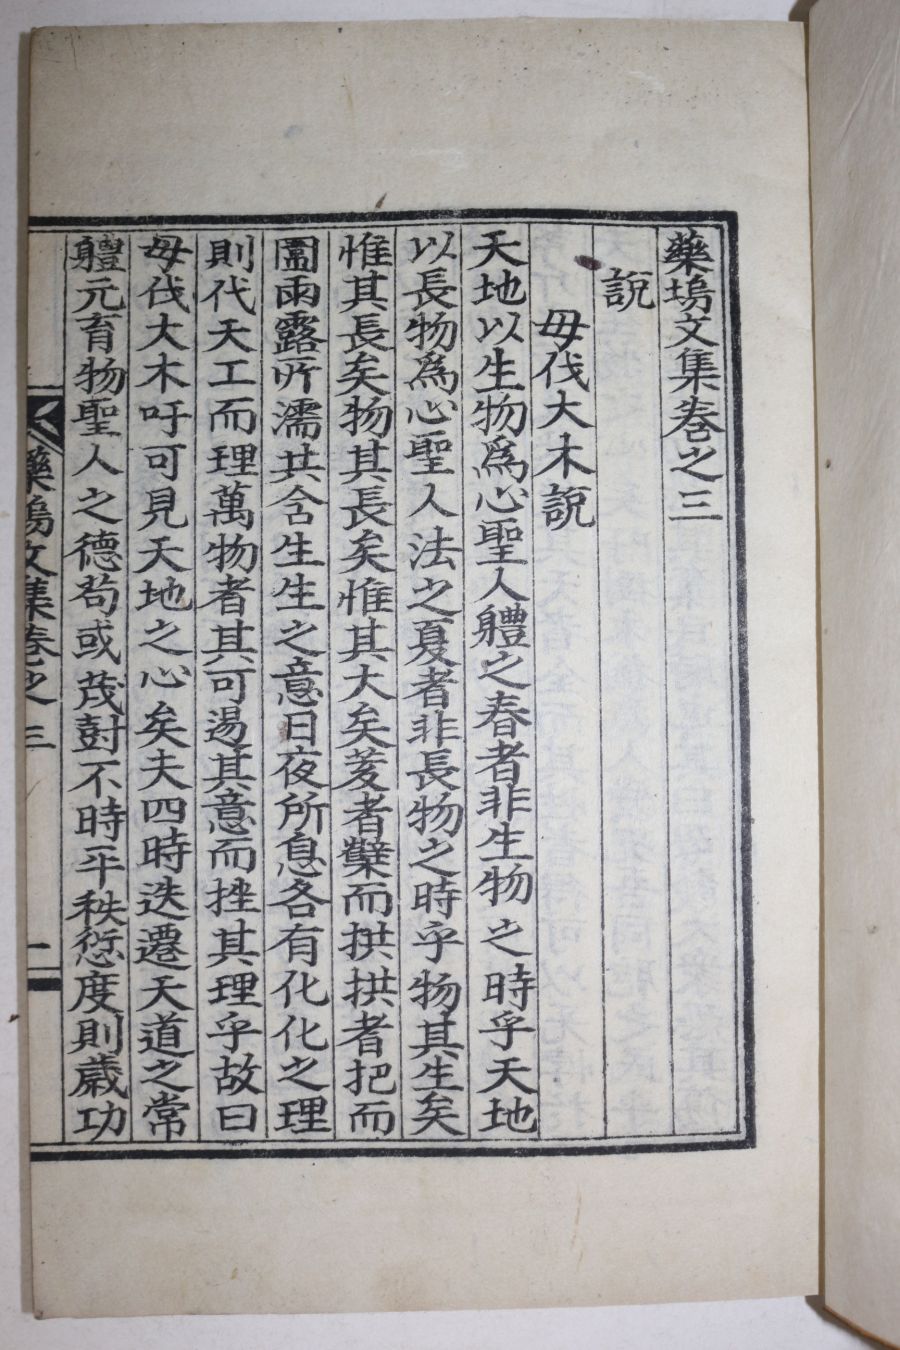 藥塢文集卷之三
說
毋伐大木說
天地以生物爲心聖人體之春者非生物之時乎天地
以長物爲心聖人法之夏者非長物之時乎物其生矣
惟其長矣物其長矣惟其大矣萎者糵而拱拱者把而
圍雨露所濡共含生生之意日夜所息各有化化之理
則代天工而理萬物者其可遏其意而挫其理乎故曰
毋伐大木吁可見天地之心矣夫四時迭遷天道之常
軆元育物聖人之德苟或茂對不時平秩愆度則歲功
藥塢文集卷之三
一